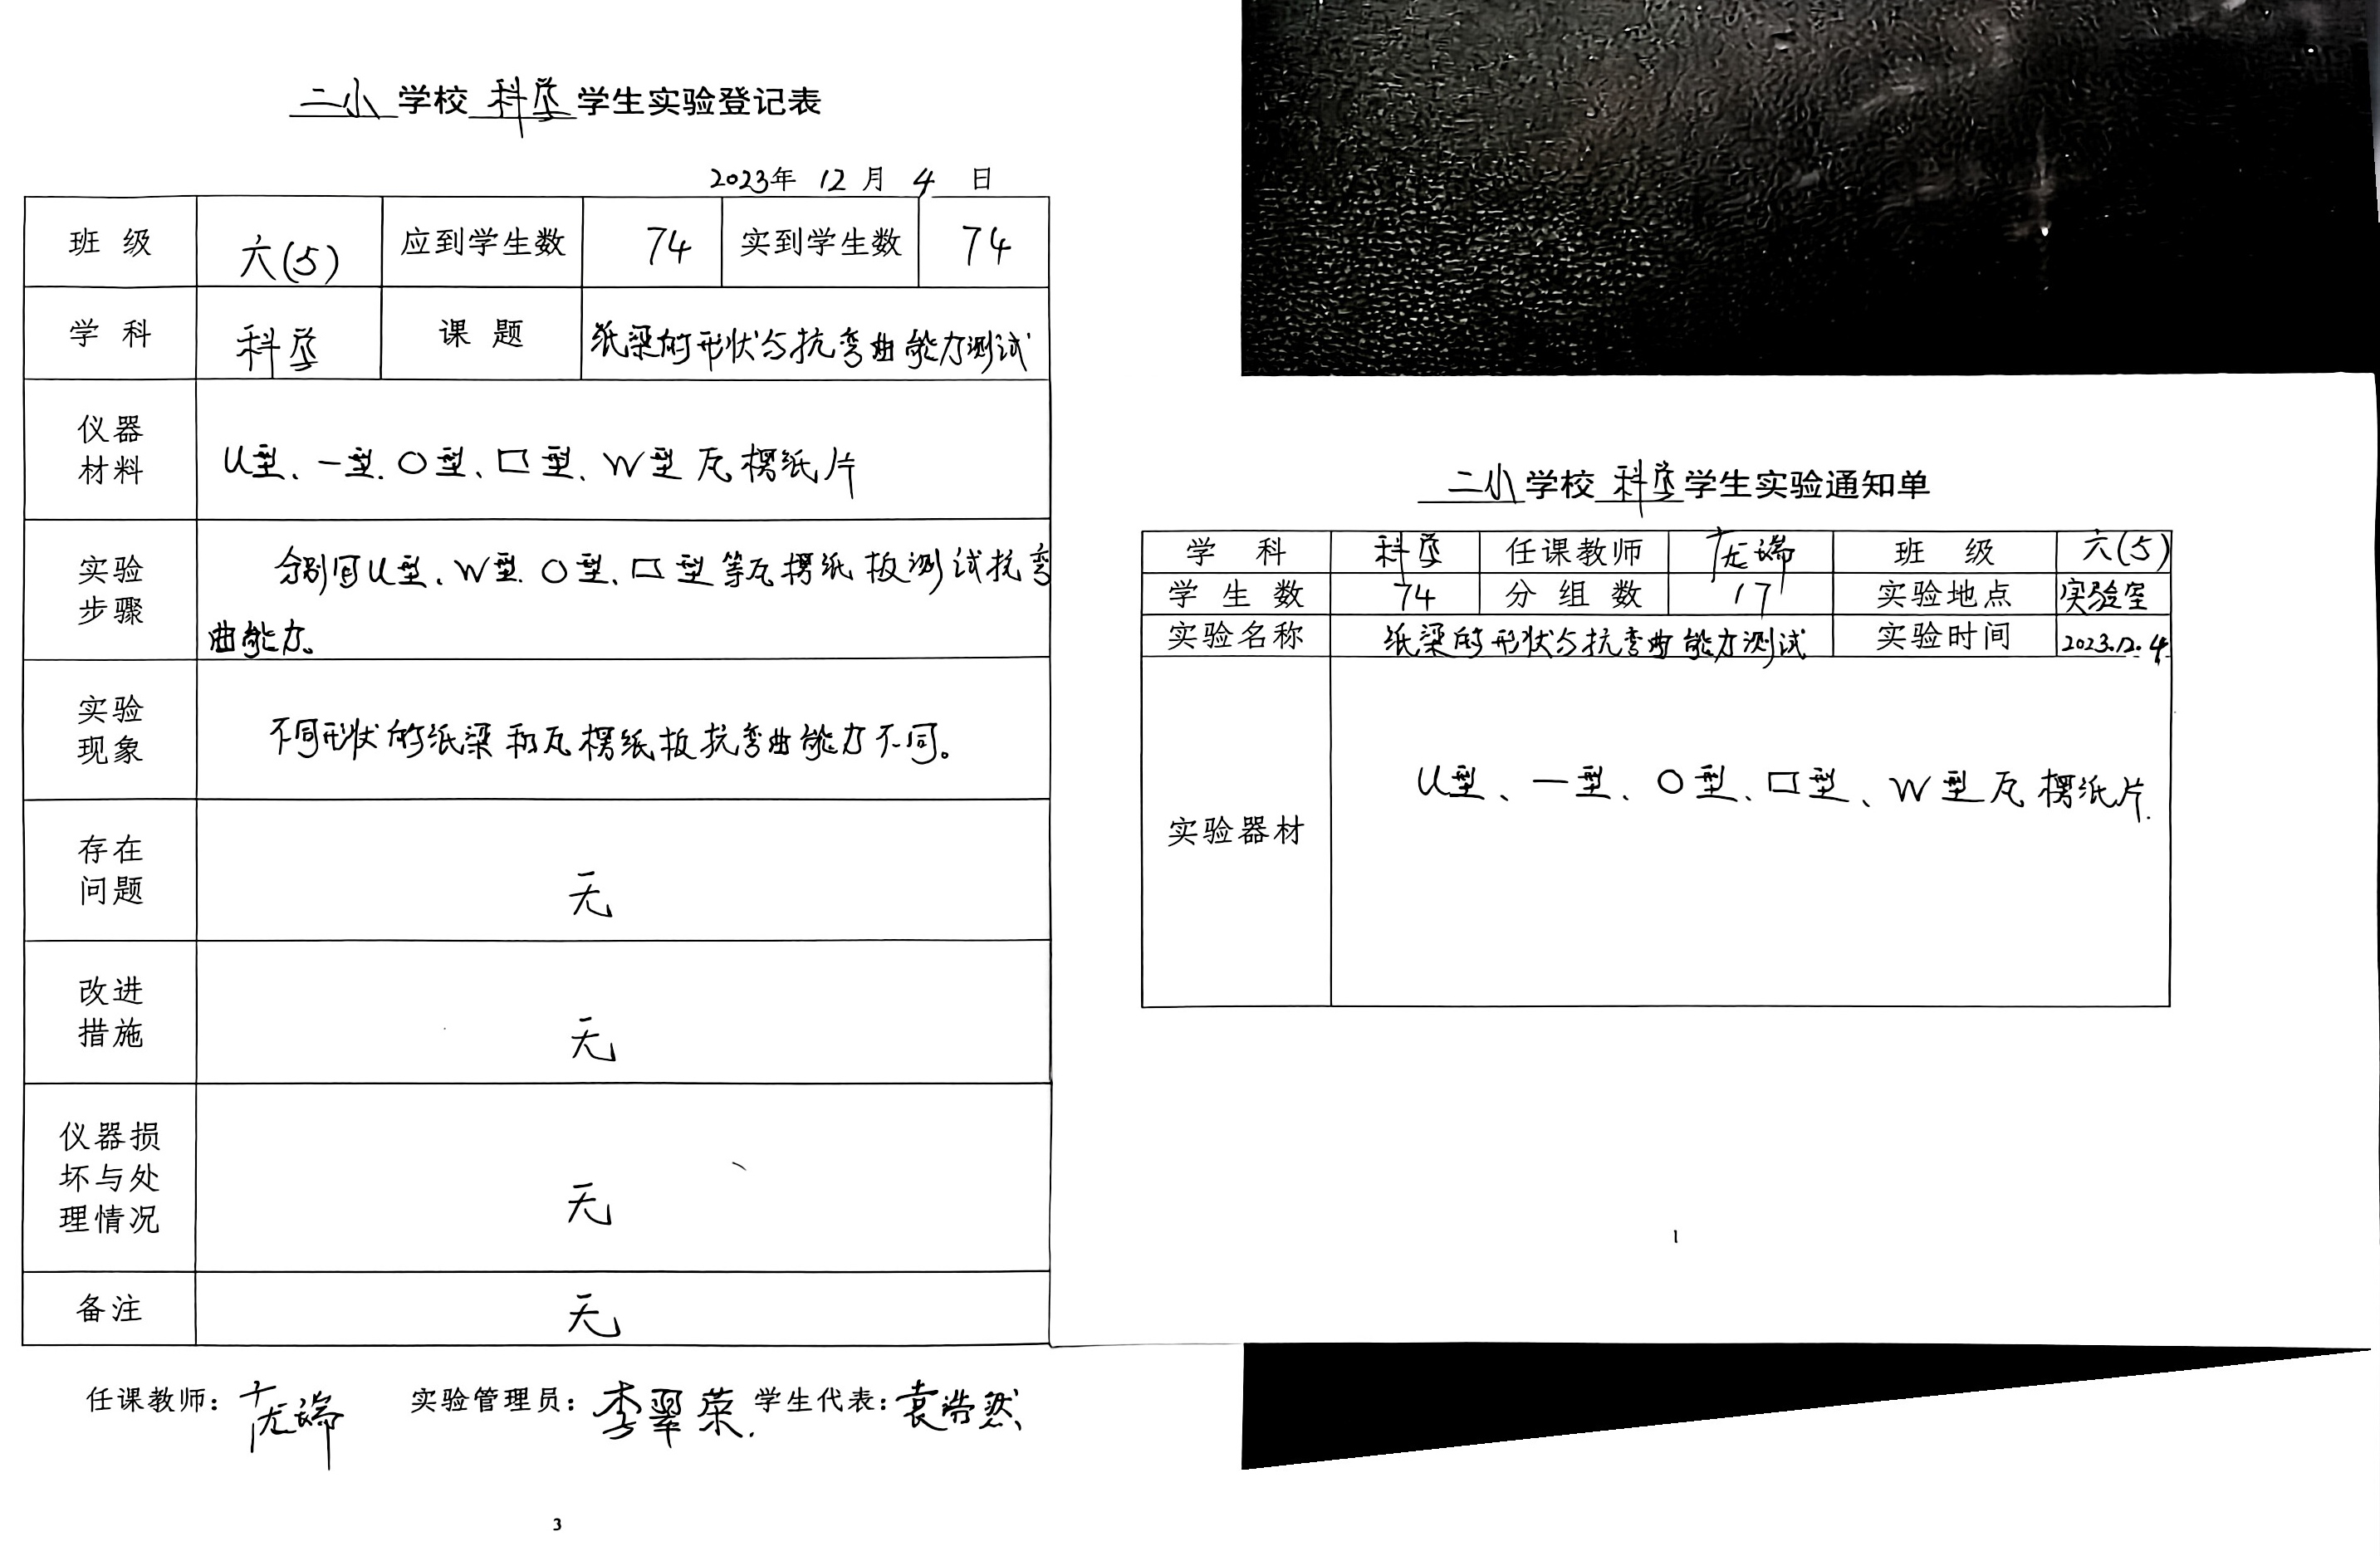 二小学校科学学生实验登记表
2023年 12月 4日
班级 六(5) 应到学生数 74 实到学生数 74
学科 科学 课题 纸梁的形状与抗弯曲能力测试
仪器
材料
U型、一型、O型、口型、W型瓦楞纸片
实验
步骤
分别可U型、W型、O型、口型等瓦楞纸板测试抗弯
曲能力。
实验
现象
不同形状的纸梁和瓦楞纸板抗弯曲能力不同。
存在
问题
无
改进
措施
无
仪器损
坏与处
理情况
无
备注 无
任课教师： 实验管理员：李翠荣. 学生代表：袁浩然
3
二小学校科学学生实验通知单
学科 科学 任课教师 班级 六(5)
学生数 74 分组数 17 实验地点 实验室
实验名称 纸梁的形状与抗弯曲能力测试 实验时间 2023.12.4
实验器材
U型、一型、O型、口型、W型瓦楞纸片.
1